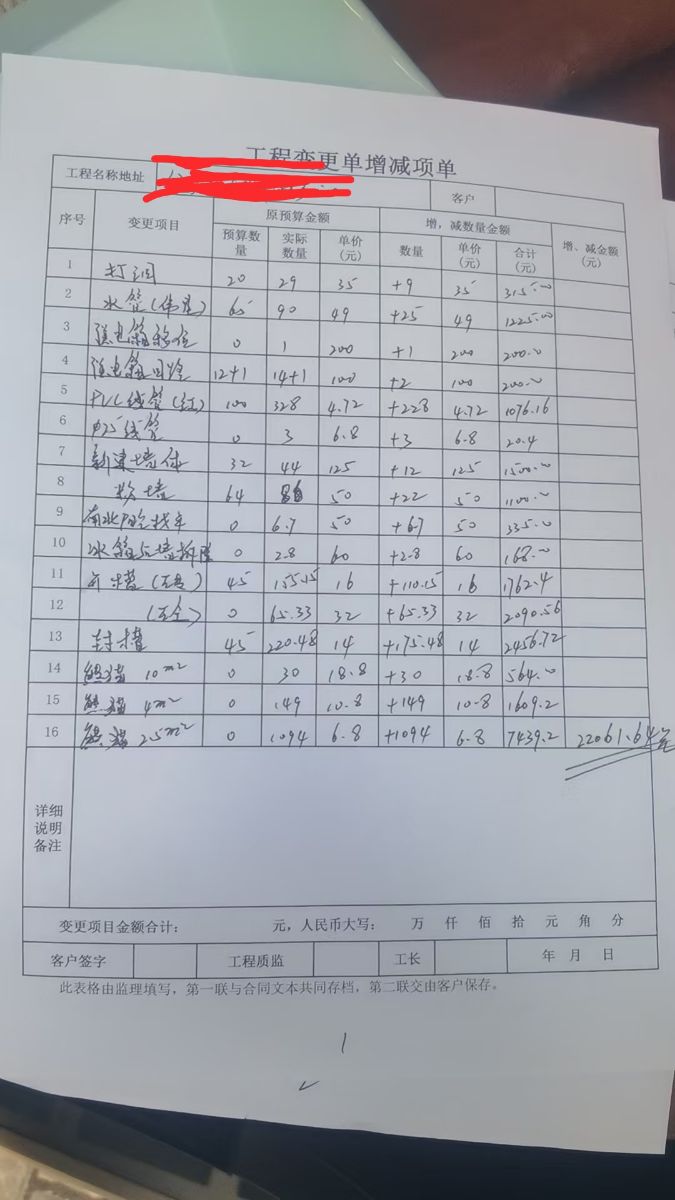 工程变更单增减项单
工程名称地址 客户
序号 变更项目 原预算金额 增,减数量金额 增、减金额(元)
预算数量 实际数量 单价(元) 数量 单价(元) 合计(元)
1 打洞 20 29 35 +9 35 315.00
2 水管(伟星) 65 90 49 +25 49 1225.00
3 强电箱移位 0 1 200 +1 200 200.00
4 强电箱回路 12+1 14+1 100 +2 100 200.00
5 PVC线管(红) 100 328 4.72 +228 4.72 1076.16
6 φ25线管 0 3 6.8 +3 6.8 20.4
7 新建墙体 32 44 125 +12 125 1500.00
8 粉墙 64 86 50 +22 50 1100.00
9 0 6.7 50 +6.7 50 335.00
10 冰箱后墙拆除 0 2.8 60 +2.8 60 168.00
11 开槽 45 155.15 16 +110.15 16 1762.4
12 0 65.33 32 +65.33 32 2090.56
13 封槽 45 220.48 14 +175.48 14 2456.72
14 熊猫 10m² 0 30 18.8 +30 18.8 564.00
15 熊猫 4m² 0 149 10.8 +149 10.8 1609.2
16 熊猫 2.5m² 0 1094 6.8 +1094 6.8 7439.2 22061.64元
详细说明备注
变更项目金额合计: 元,人民币大写: 万 仟 佰 拾 元 角 分
客户签字 工程质监 工长 年 月 日
此表格由监理填写,第一联与合同文本共同存档,第二联交由客户保存。
1